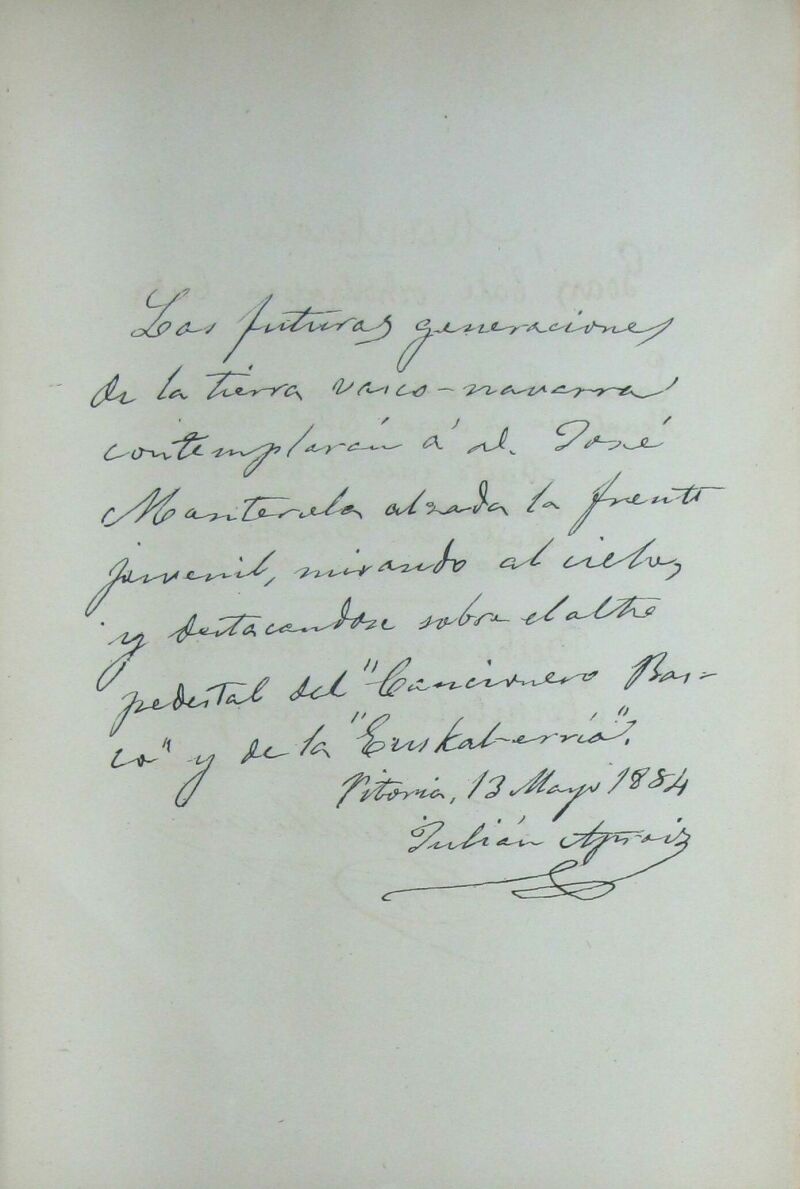 Las futuras generaciones
de la tierra vasco-navarra
contemplarán á d. José
Manterola alzada la frente
juvenil, mirando al cielo,
y destacandose sobre el alto
pedestal del "Cancionero Bas-
co" y de la "Euskal-erría".
Vitoria, 13 Mayo 1884
Julián Apraiz